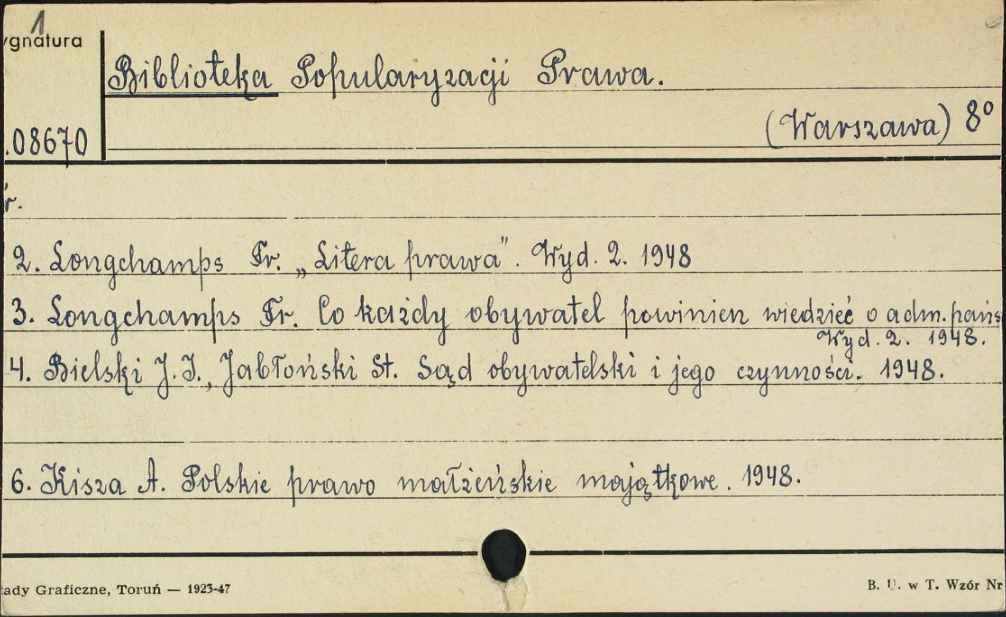 1
ygnatura
Biblioteka Popularyzacji Prawa.
(Warszawa) 8°
.08670
r.
2. Longchamps Fr. „Litera prawa". Wyd. 2. 1948
3. Longchamps Fr. Co każdy obywatel powinien wiedzieć o adm. pańs
Wyd. 2. 1948.
4. Bielski J. I., Jabłoński St. Sąd obywatelski i jego czynności. 1948.
6. Kisza A. Polskie prawo małżeńskie majątkowe. 1948.
ady Graficzne, Toruń — 1923-47
B. U. w T. Wzór Nr